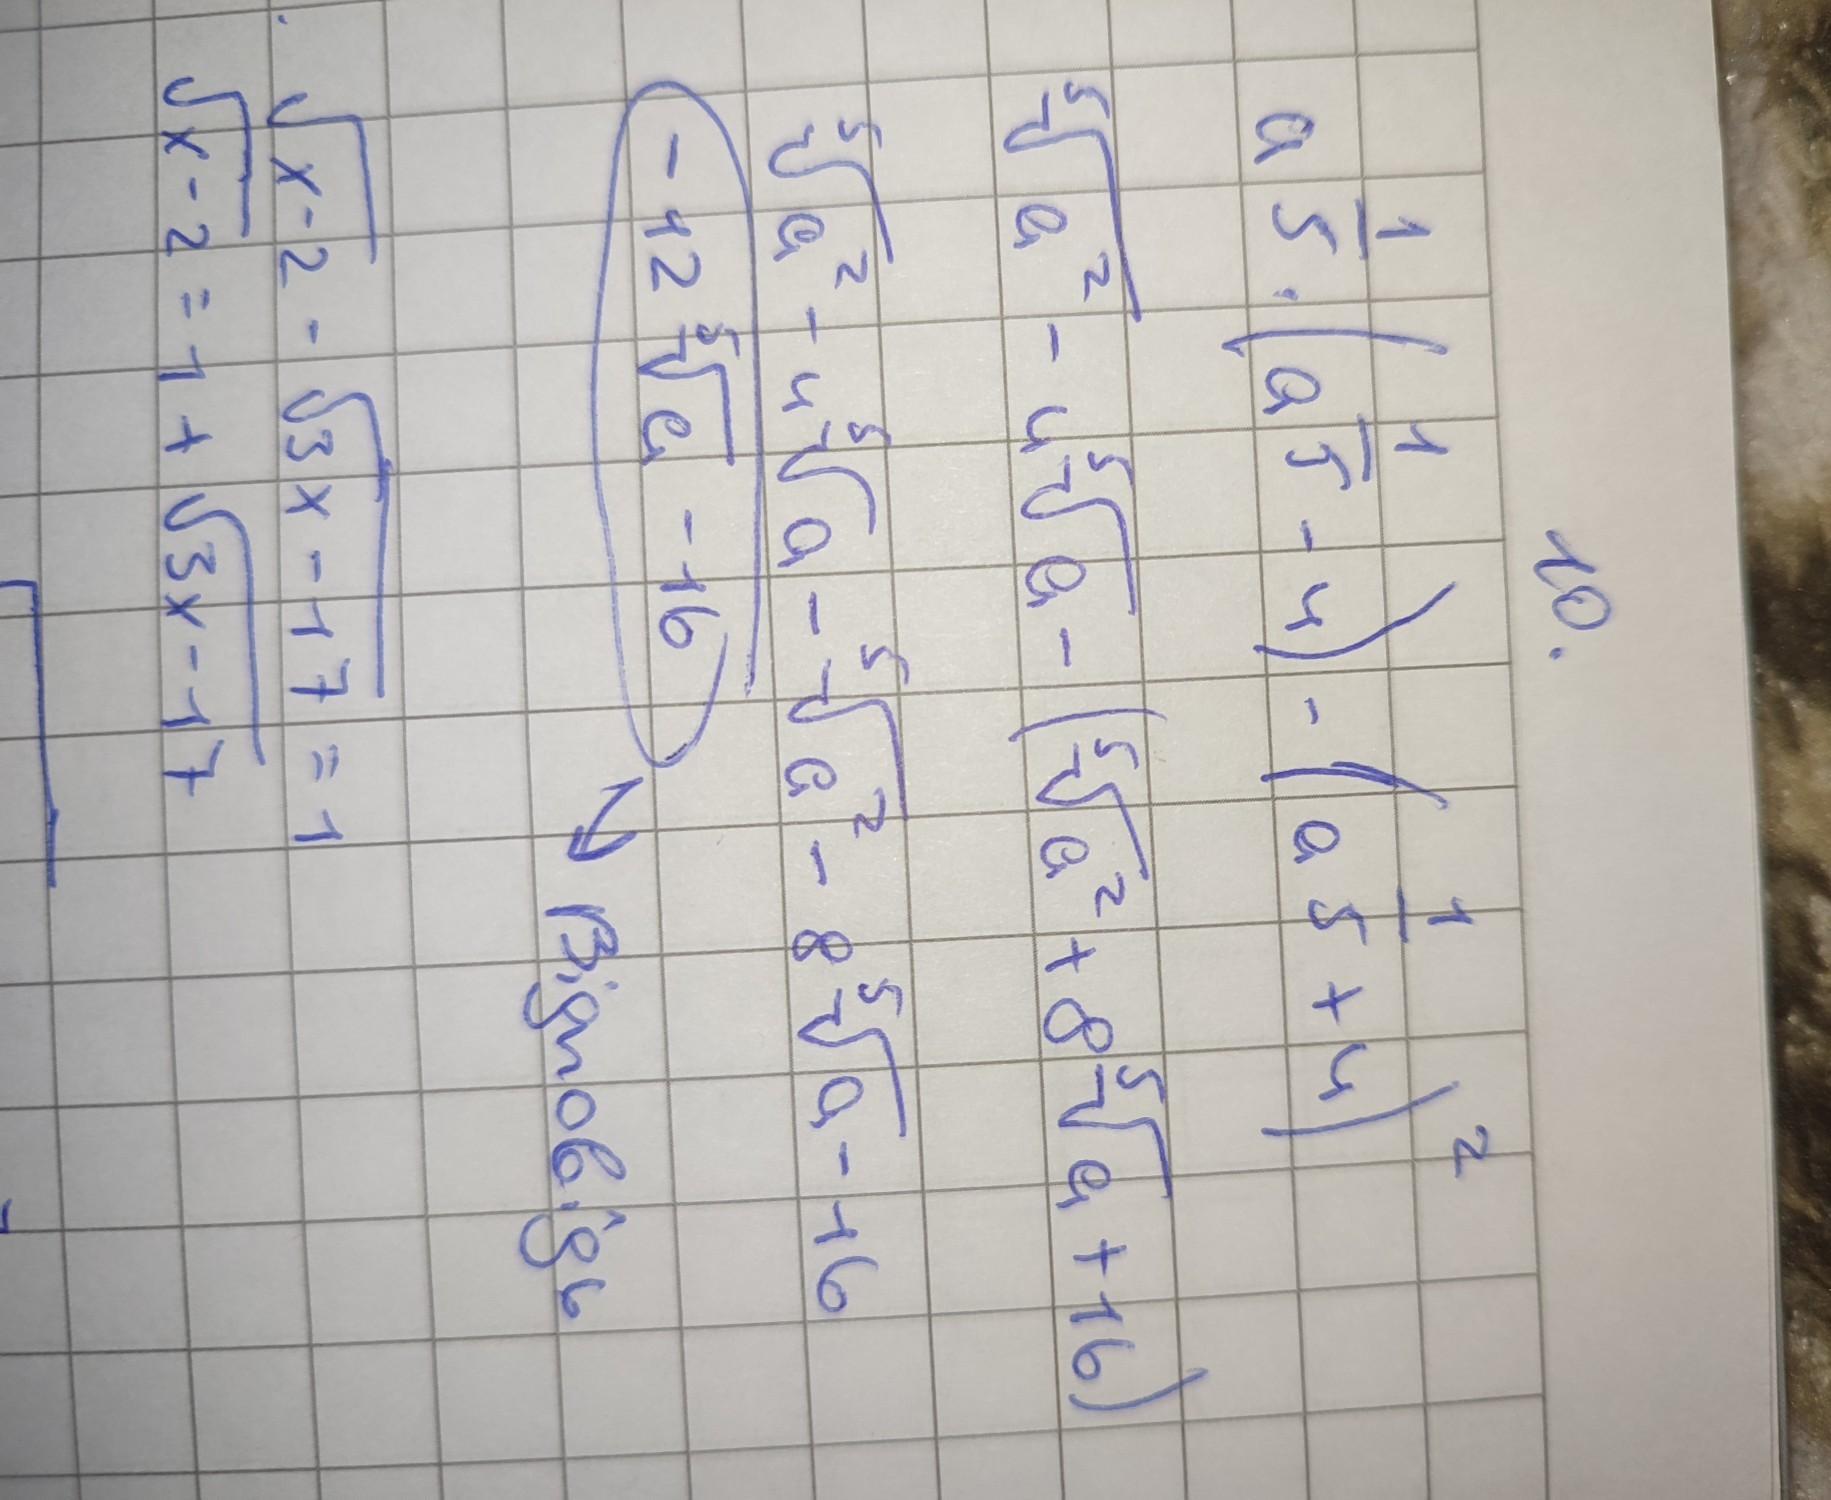 10.
a^(1/5) · (a^(1/5) - 4) - (a^(1/5) + 4)²
⁵√a² - 4⁵√a - (⁵√a² + 8⁵√a + 16)
⁵√a² - 4⁵√a - ⁵√a² - 8⁵√a - 16
-12⁵√a - 16
→ Відповідь
√x-2 - √3x-17 = 1
√x-2 = 1 + √3x-17